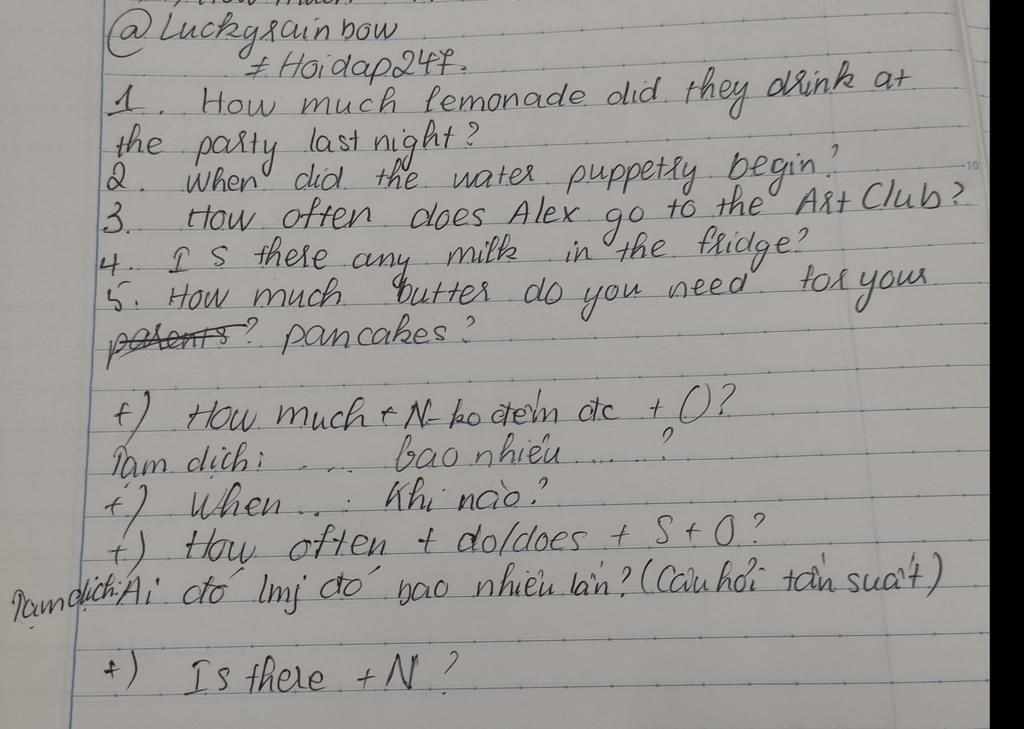 @Luckyrainbow
# Hoidap247.
1. How much lemonade did they drink at
the party last night?
2. When did the water puppetry begin?
3. How often does Alex go to the Art Club?
4. Is there any milk in the fridge?
5. How much butter do you need for your
parents? pancakes?
+) How much + N ko đếm đc + O?
Tạm dịch: .... bao nhiêu ..... ?
+) When ... : Khi nào?
+) How often + do/does + S + O?
Tạm dịch: Ai đó lmj đó bao nhiêu lần? (Câu hỏi tần suất)
+) Is there + N?